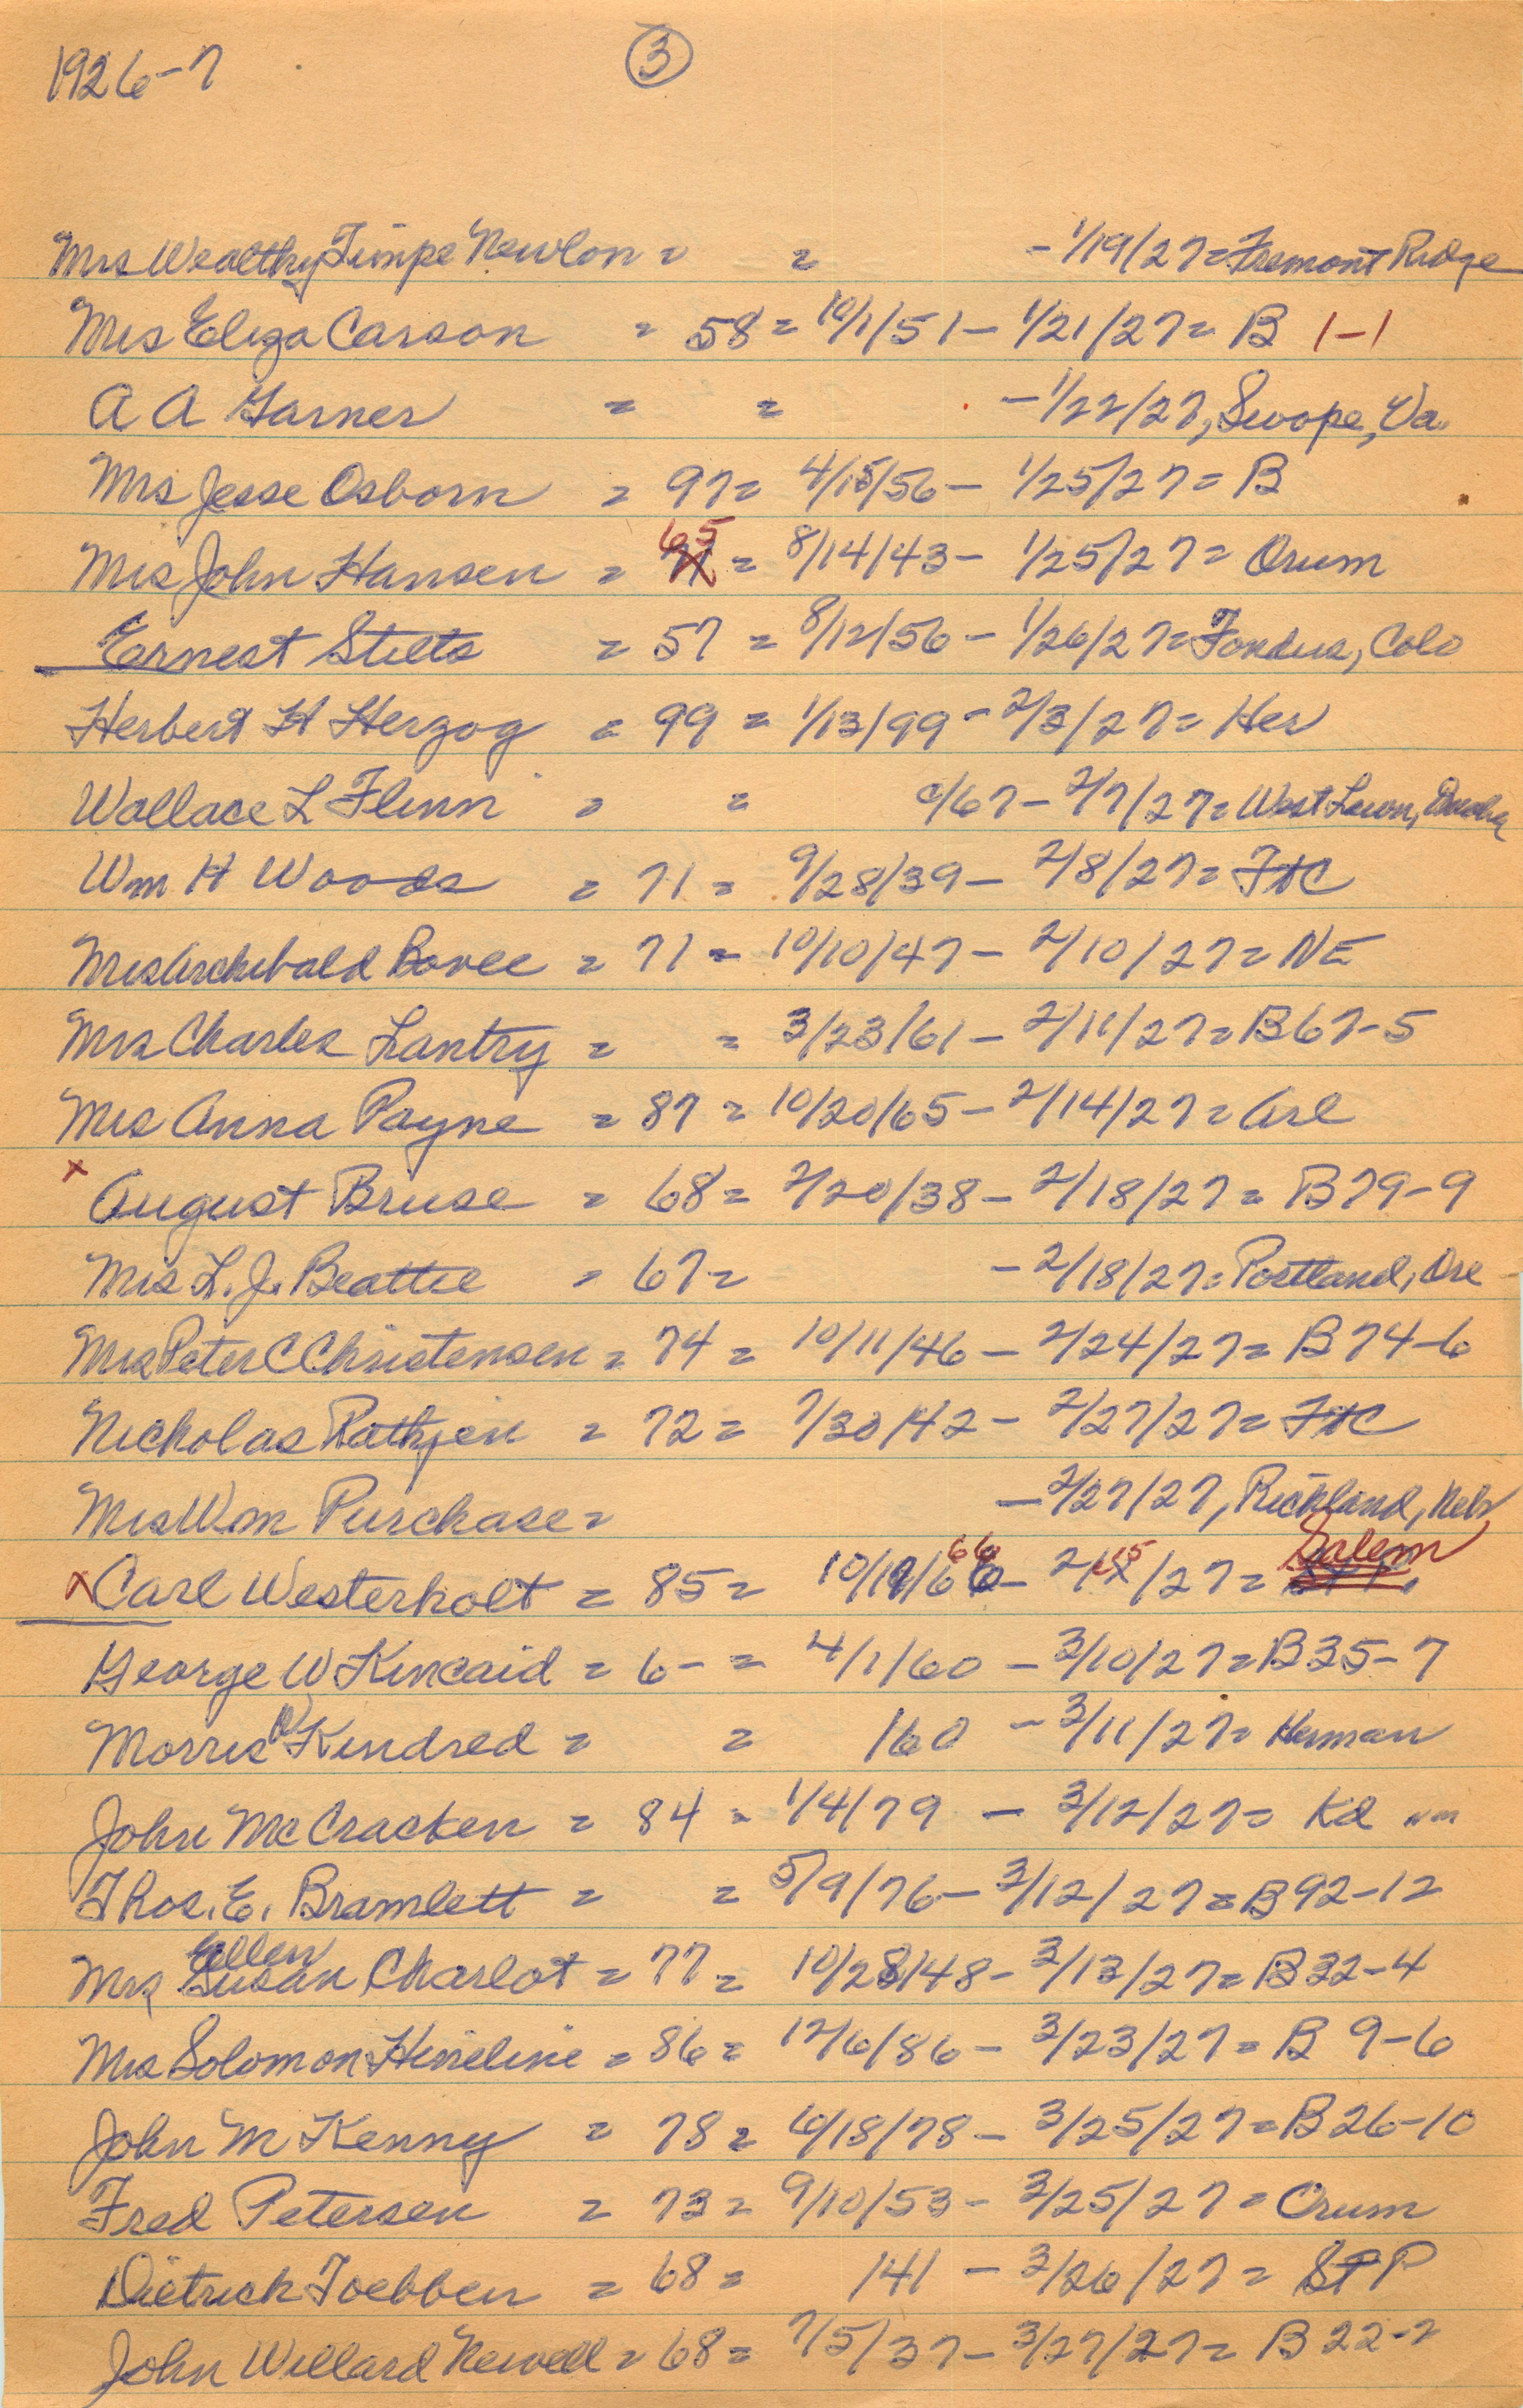 1926-7
3
Mrs Wealthy Timpe Newlon = = - 1/19/27 = Fremont Ridge
Mrs Eliza Carson = 58 = 10/1/51 - 1/21/27 = B 1-1
A A Garner = = - 1/22/27, Swope, Va.
Mrs Jesse Osborn = 97 = 4/15/56 - 1/25/27 = B
65
Mrs John Hansen = = 8/14/43 - 1/25/27 = Orum
Ernest Stilts = 57 = 8/12/56 - 1/26/27 = Colo
Herbert H Herzog = 99 = 1/13/99 - 2/3/27 = Her
Wallace L Flinn = = c/67 - 2/7/27 = West Lawn, Omaha
Wm H Woods = 71 = 9/28/39 - 2/8/27 = FtC
Mrs Archibald Bovee = 71 = 10/10/47 - 2/10/27 = NE
Mrs Charles Lantry = = 3/23/61 - 2/11/27 = B67-5
Mrs Anna Payne = 87 = 10/20/65 - 2/14/27 = Arl
x August Bruse = 68 = 2/20/38 - 2/18/27 = B79-9
Mrs L. J. Beattie = 67 = - 2/18/27 = Portland, Ore
Mrs Peter C Christensen = 74 = 10/11/46 - 2/24/27 = B74-6
Nicholas Rathjen = 72 = 7/30/42 - 2/27/27 = FtC
Mrs Wm Purchase = - 2/27/27, Richland, Nebr
66 Salem
x Carl Westerholt = 85 = /27 =
George W Kincaid = 6- = 4/1/60 - 3/10/27 = B35-7
Morris Kindred = = 160 - 3/11/27 = Herman
John McCracken = 84 = 1/4/79 - 3/12/27 = Kd
Thos. E. Bramlett = = 5/9/76 - 3/12/27 = B92-12
Ellen
Mrs Susan Charlot = 77 = 10/28/48 - 3/13/27 = B32-4
Mrs Solomon Hineline = 86 = 12/6/86 - 3/23/27 = B 9-6
John M Kenny = 78 = 6/18/78 - 3/25/27 = B26-10
Fred Petersen = 73 = 9/10/53 - 3/25/27 = Orum
Dietrich Toebben = 68 = 141 - 3/26/27 = StP
John Willard Newell = 68 = 7/5/37 - 3/27/27 = B 22-2